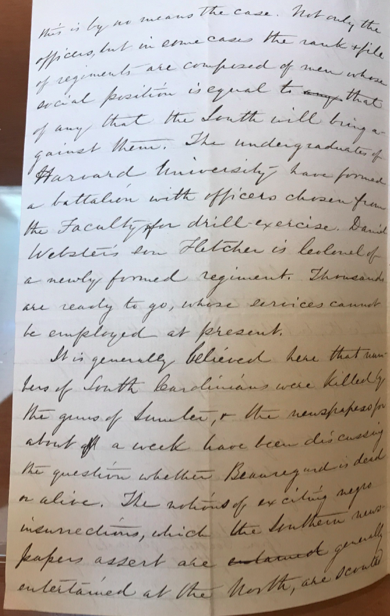 this is by no means the case. Not only the
officers, but in some cases the rank & file
of regiments are composed of men whose
social position is equal to that
of any that the South will bring a
gainst them. The undergraduates of
Harvard University have formed
a battalion with officers chosen from
the Faculty for drill-exercise. Daniel
Websters son Fletcher is Colonel of
a newly formed regiment. Thousands
are ready to go, whose services cannot
be employed at present.
It is generally believed here that num-
bers of South Carolinians were killed by
the guns of Sumter, & the newspapers for
about a week have been discussing
the question whether Beauregard is dead
or alive. The notions of exciting negro
insurrections, which the Southern news-
papers assert are generally
entertained at the North, are scouted